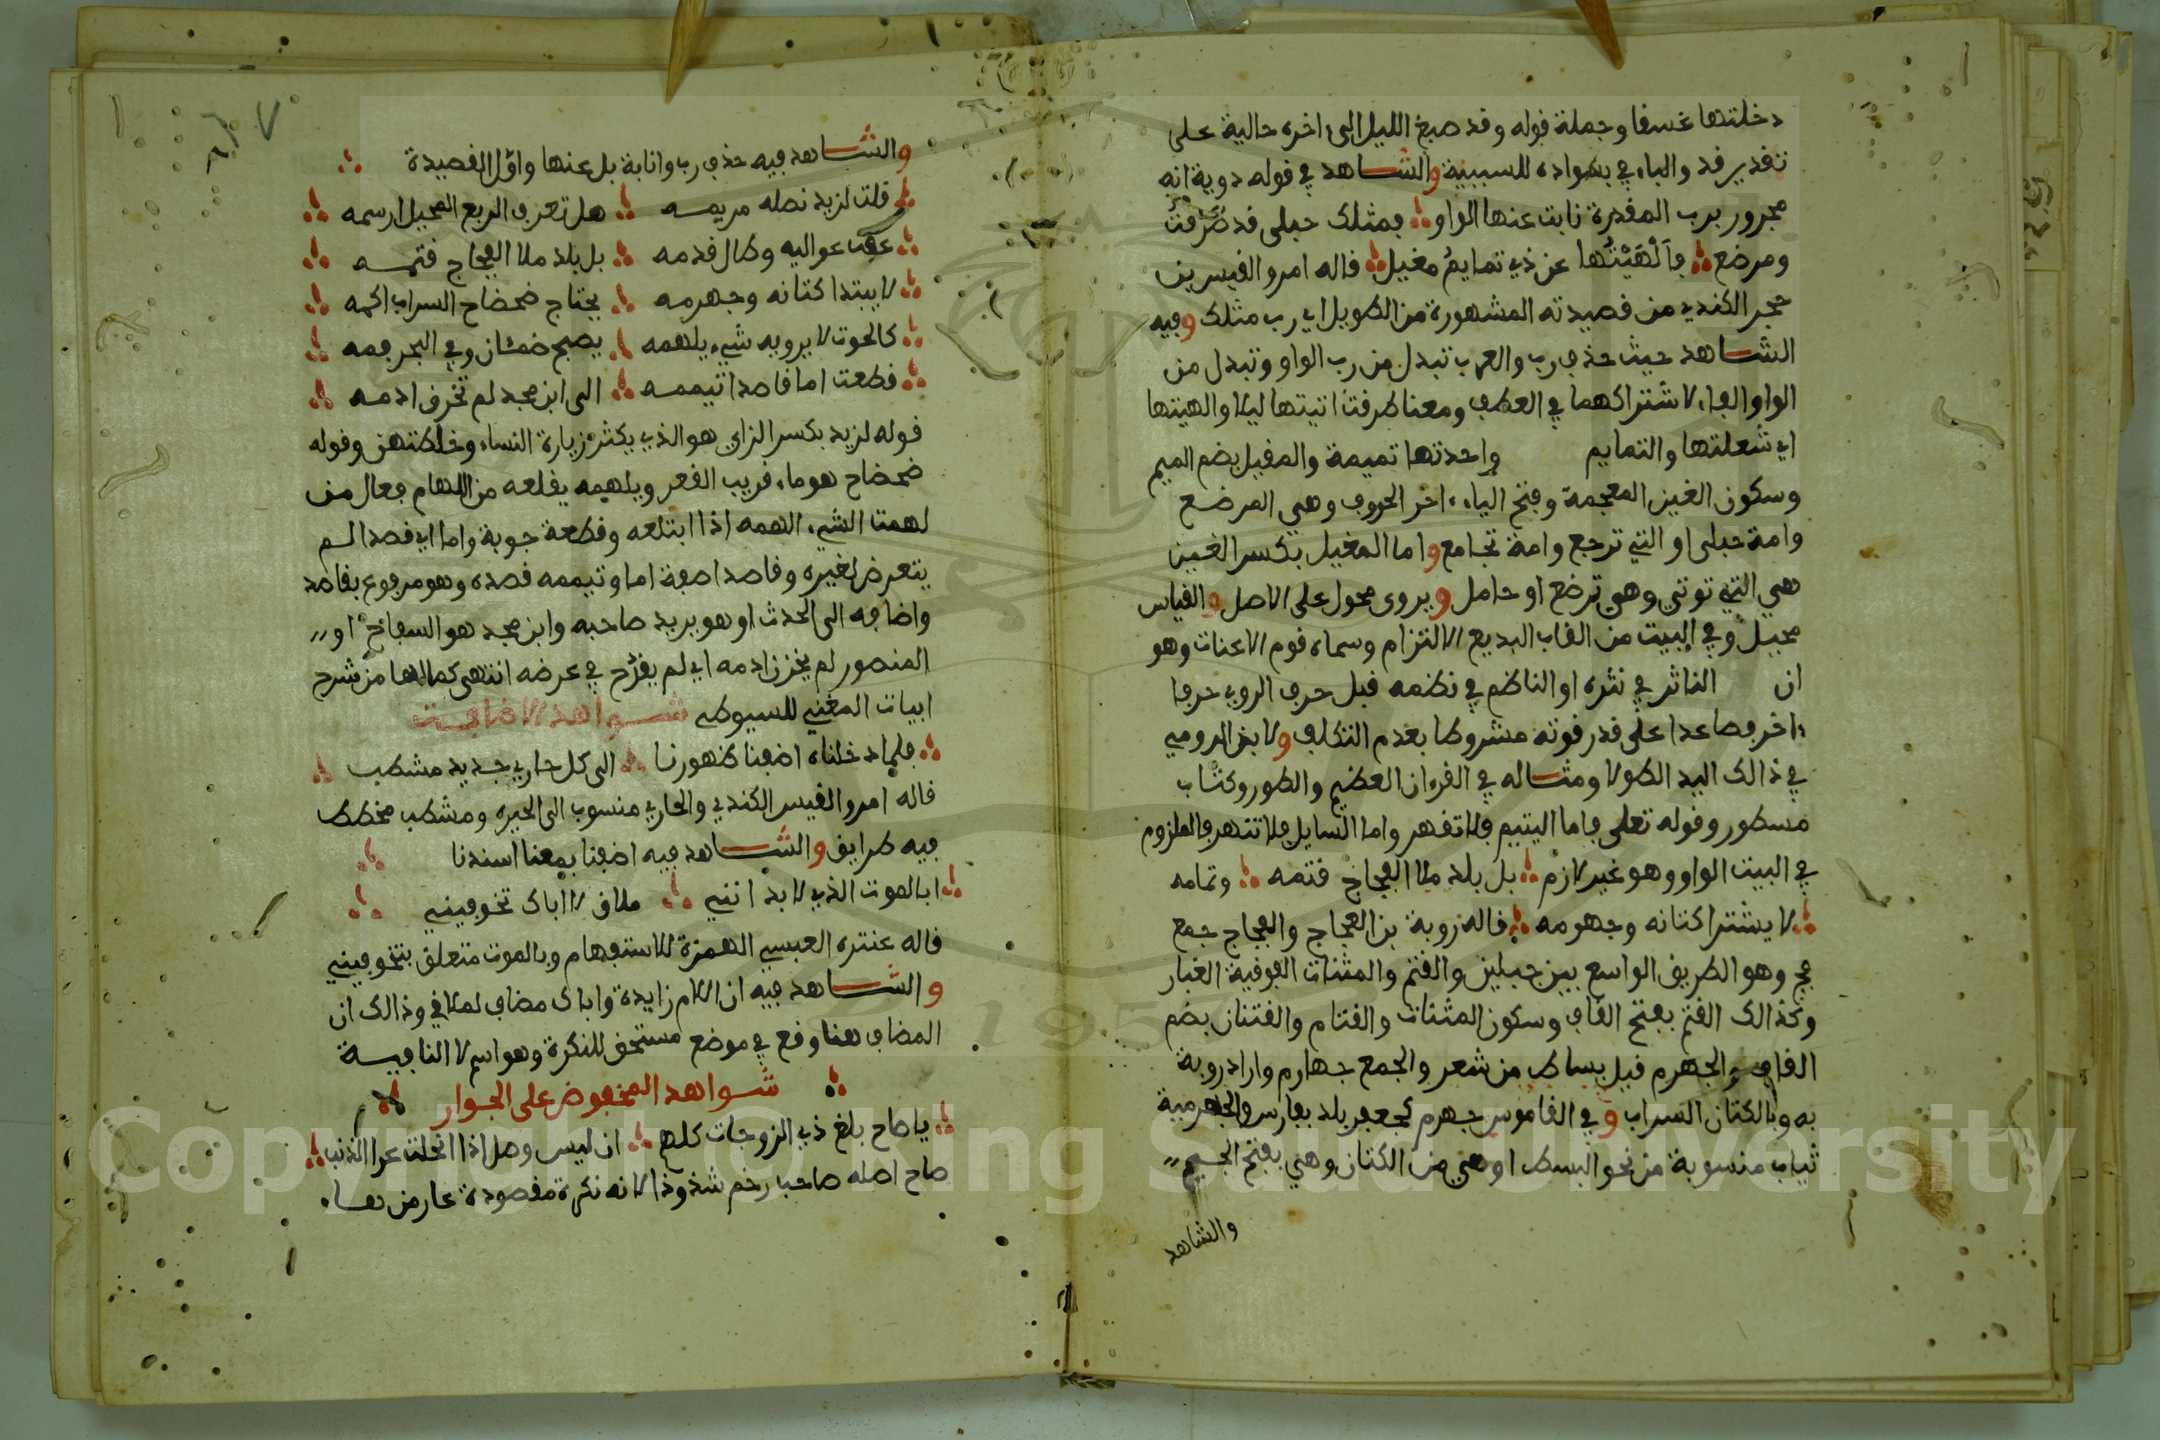 دخلتها غسفا وجملة قوله وقد صبغ الليل الى ءاخره حالية على
تقدير قد والباء في بسواده للسببية والشاهد في قوله دوية انه
مجرور برب المقدرة نابت عنها الواو فمثلك حبلى قد طرقت
ومرضع فألهيتها عن ذي تمايم مغيل قاله امرو القيس بن
حجر الكندي من قصيدته المشهورة من الطويل اي رب مثلك وفيه
الشاهد حيث حذف رب والعرب تبدل من رب الواو وتبدل من
الواو الفاء لاشتراكهما في العطف ومعنا طرقت اتيتها ليلا والهيتها
اي شغلتها والتمايم واحدتها تميمة والمغيل بضم الميم
وسكون الغين المعجمة وفتح الياء ءاخر الحروف وهي المرضع
وامة حبلى او التي ترجع وامة تجامع واما المغيل بكسر الغين
هي التي توتي وهي ترضع او حامل ويروى محول على الاصل والقياس
محيل وفي البيت من القاب البديع الالتزام وسماه قوم الاعنات وهو
ان الناثر في نثره او الناظم في نظمه قبل حرف الروي حرفا
ءاخر فصاعدا على قدر قوته مشروطا بعدم التكلف ولابن الرومي
في ذالك اليد الطولا ومثاله في القرءان العظيم والطور وكتاب
مسطور وقوله تعلى فاما اليتيم فلا تقهر واما السايل فلا تنهر فالملزوم
في البيت الواو وهو غير لازم بل بلد ملا الفجاج قتمه وتمامه
لا يشترا كتانه وجهرمه قاله روبة بن العجاج والفجاج جمع
فج وهو الطريق الواسع بين جبلين والقتم والمثنات الفوقية الغبار
وكذالك القتم بفتح القاف وسكون المثنات والقتام والقتنان بضم
القاف والجهرم قيل بساط من شعر والجمع جهارم واراد روبة
به وبالكتان السراب وفي القاموس جهرم كجعفر بلد بفارس والجهرمية
ثياب منسوبة من نحو البسط او هي من الكتان وهي بفتح الجيم
والشاهد
والشاهد فيه حذف رب وانابة بل عنها واول القصيدة
قلت لزيد تصله مريمه هل تعرف الربع المحيل ارسمه
عفت عواليه وطال قدمه بل بلد ملا الفجاج قتمه
لا يبتدا كتانه وجهرمه يجتاج ضحضاح السراب اكمه
كالحوت لا يرويه شيء يلهمه يصبح ضمئان وفي البحر فمه
قطعت اما قاصدا تيممه الى ابن مجد لم تخرق ادمه
قوله لزيد بكسر الزاي هو الذي يكثر زيارة النساء وخلطتهن وقوله
ضحضاح هو ماء قريب القعر ويلهمه يقلعه من اللهام فعال من
لهمت الشيء الهمه اذا ابتلعه وقطعة جوبة واما اي قصدا لم
يتعرض لغيره وقاصدا صفة اما وتيممه قصده وهو مرفوع بقاصد
واضافه الى الحدث او هو يريد صاحبه وابن مجد هو السفاح او
المنصور لم يخزنادمه اي لم يقرح في عرضه انتهى كمالها من شرح
ابيات المغني للسيوطي شواهد الاضافة
فلما دخلناه اضفنا ظهورنا الى كل حاري جديد مشطب
قاله امرو القيس الكندي والحاري منسوب الى الحيره ومشطب مخطط
فيه طرايق والشاهد فيه اضفنا بمعنا اسندنا
ابالموت الذي لا بد انني ملاق لا اباك تخوفيني
قاله عنتره العبسي الهمزة للاستفهام وبالموت متعلق بتخوفيني
والشاهد فيه ان اللام زايدة واباك مضاف لملاقي وذالك ان
المضاف هنا وقع في موضع مستحق للنكرة وهو اسم لا النافية
شواهد المخفوض على الجوار
يا صاح بلغ ذي الزوجات كلهم ان ليس وصل اذا انحلت عرا الذنب
صاح اصله صاحب رخم شذوذا لانه نكرة مقصودة عار من هاء